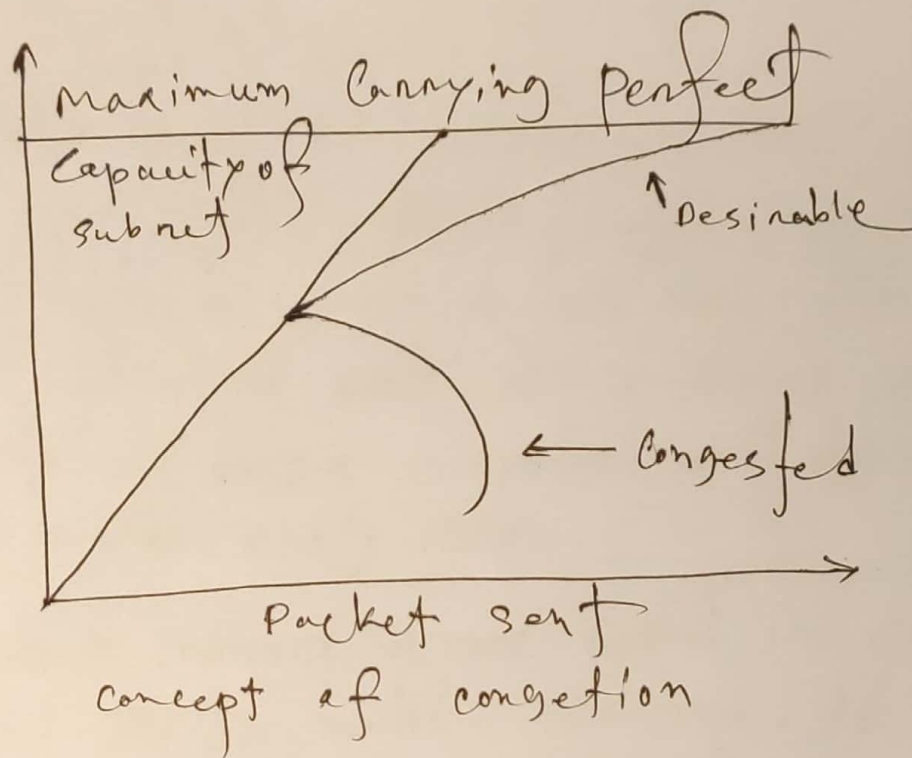 Maximum Carrying Perfect
Capacity of
subnet
Desirable
Congested
Packet sent
concept of congetion